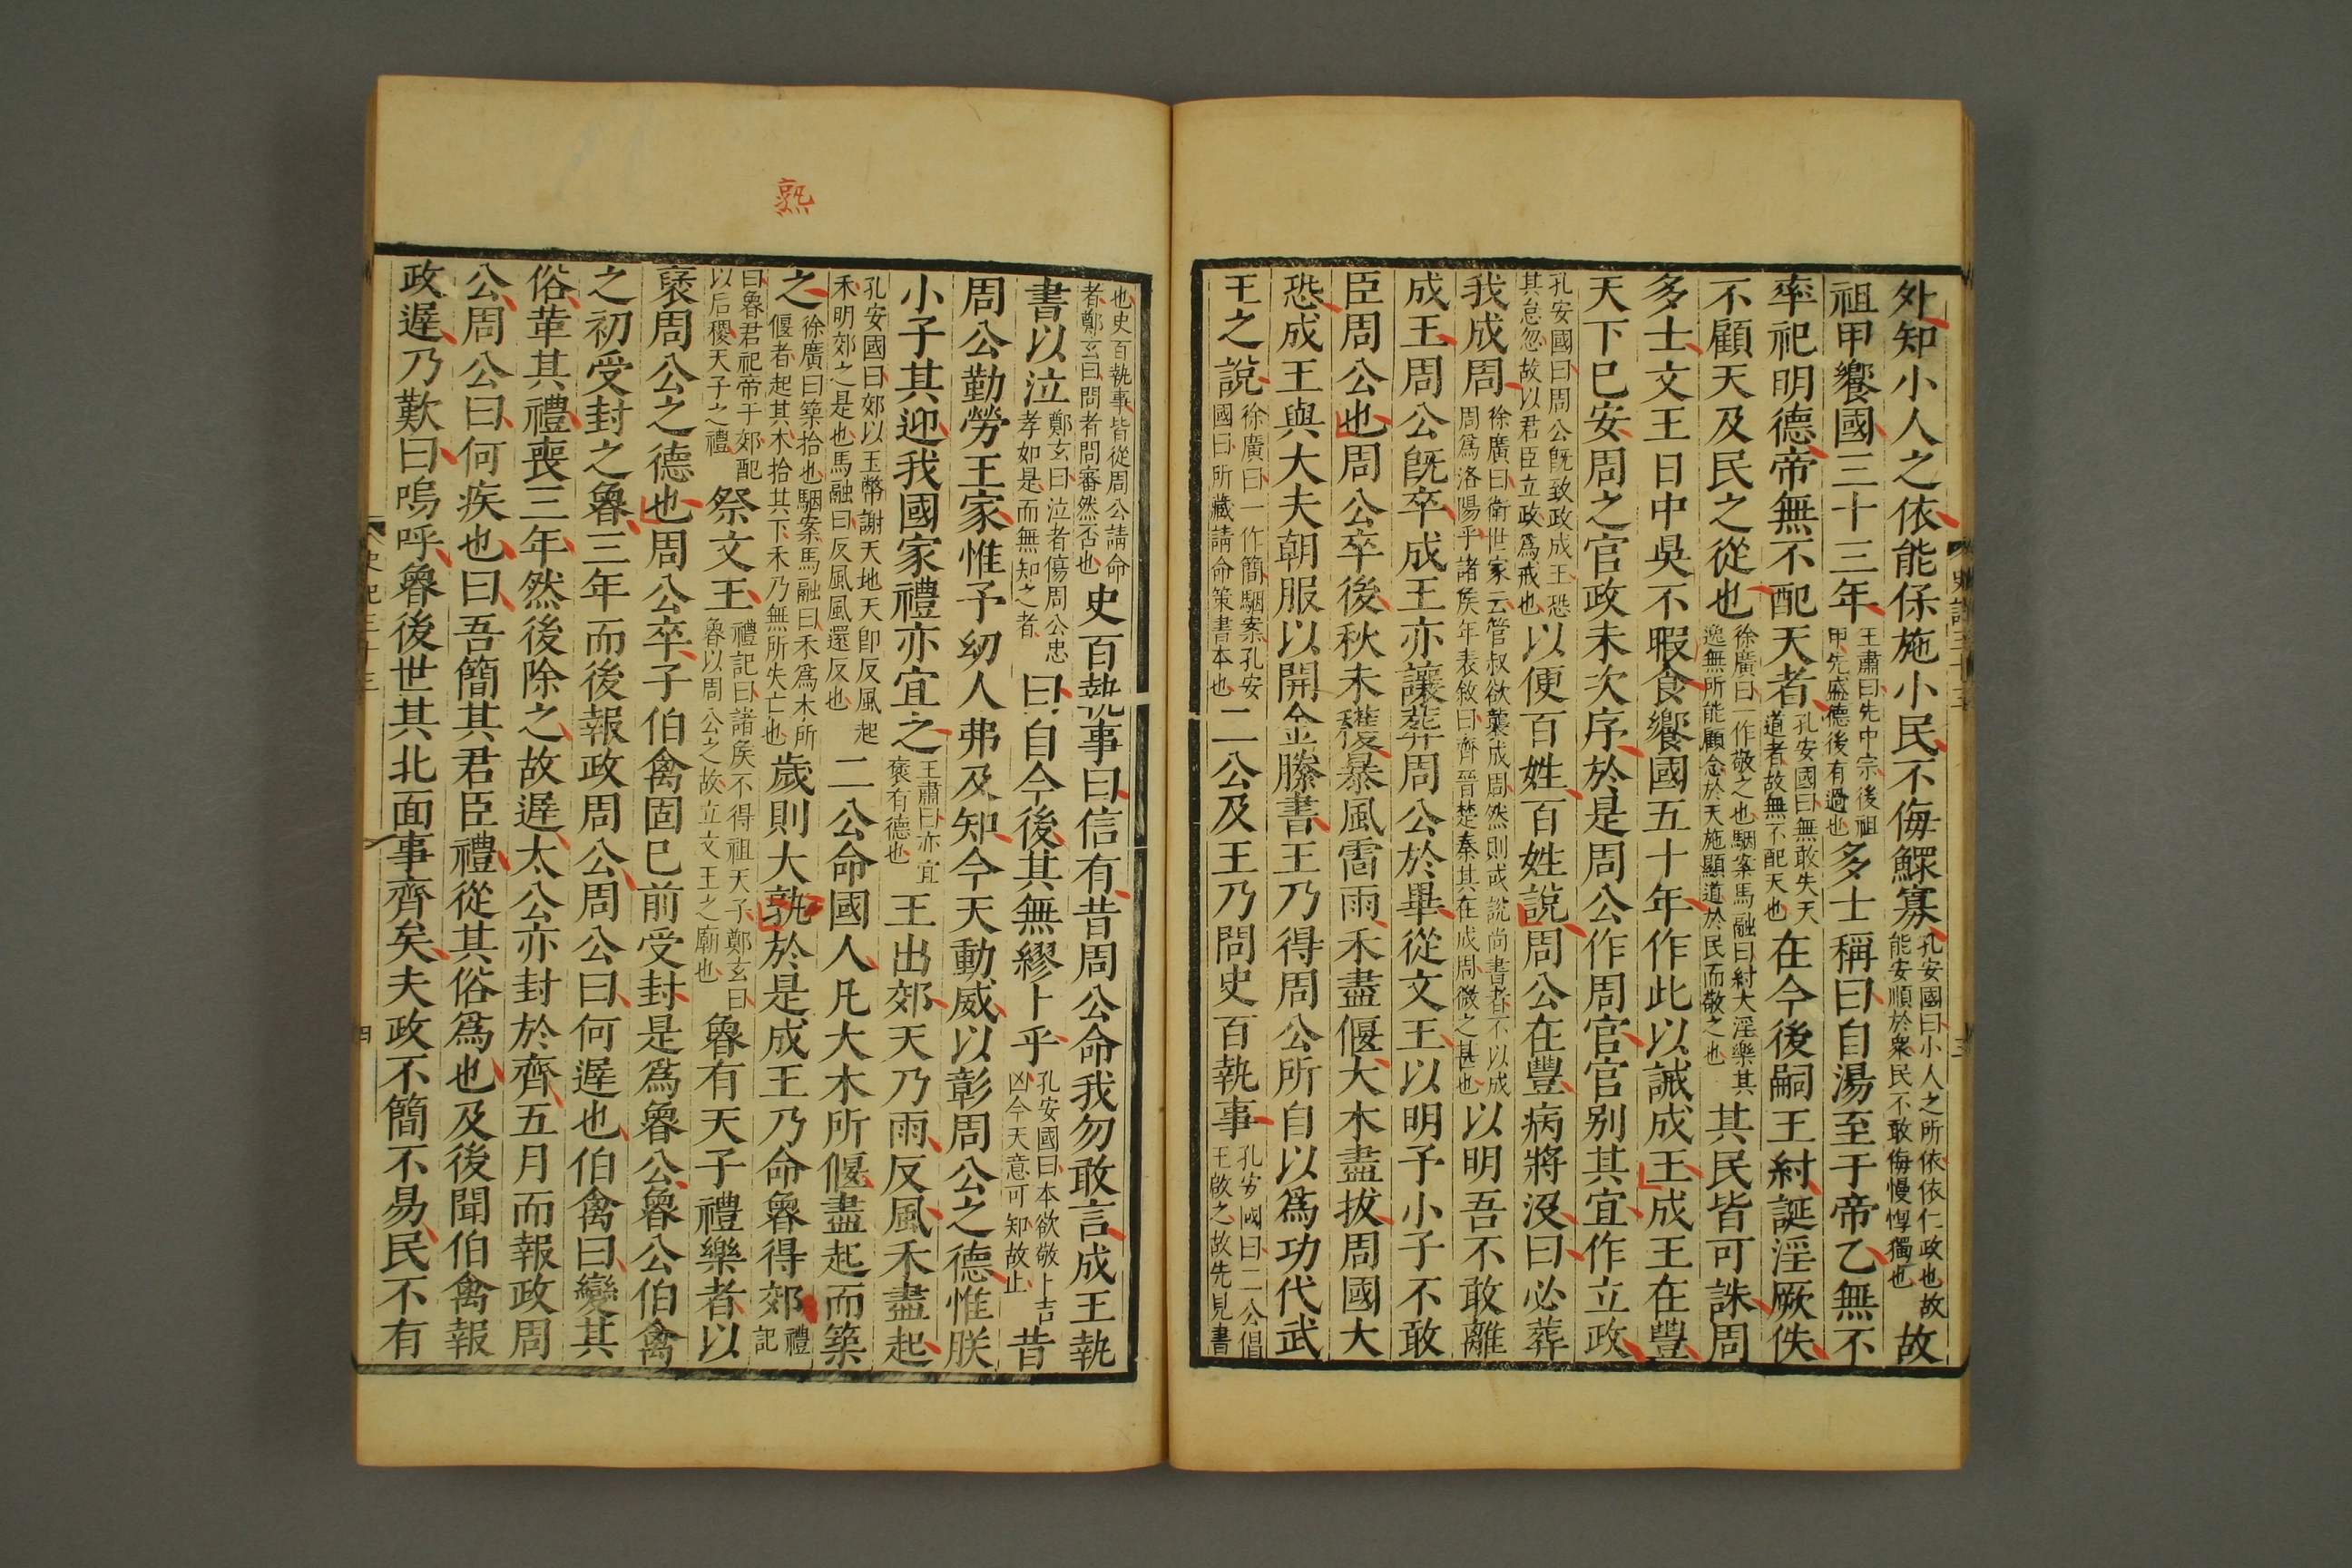 外知小人之依能保施小民不侮鰥寡孔安國曰小人之所依依仁政也故能安順於衆民不敢侮慢惸獨也故
祖甲饗國三十三年王肅曰先中宗後祖甲先盛德後有過也多士稱曰自湯至于帝乙無不
率祀明德帝無不配天者孔安國曰無敢失天道者故無不配天也在今後嗣王紂誕淫厥佚
不顧天及民之從也徐廣曰一作敬之也駰案馬融曰紂大淫樂其逸無所能顧念於天施顯道於民而敬之也其民皆可誅周
多士文王日中昃不暇食饗國五十年作此以誡成王成王在豐
天下已安周之官政未次序於是周公作周官官别其宜作立政
孔安國曰周公旣致政成王恐其怠忽故以君臣立政爲戒也以便百姓百姓說周公在豐病將没曰必葬
我成周徐廣曰衛世家云管叔欲襲成周然則或說尚書者不以成周爲洛陽乎諸侯年表敘曰齊晉楚秦其在成周微之甚也以明吾不敢離
成王周公旣卒成王亦讓葬周公於畢從文王以明予小子不敢
臣周公也周公卒後秋未穫暴風雷雨禾盡偃大木盡拔周國大
恐成王與大夫朝服以開金縢書王乃得周公所自以爲功代武
王之說徐廣曰一作簡駰案孔安國曰所藏請命策書本也二公及王乃問史百執事孔安國曰二公倡王啟之故先見書
也史百執事皆從周公請命者鄭玄曰問者問審然否也史百執事曰信有昔周公命我勿敢言成王執
書以泣鄭玄曰泣者傷周公忠孝如是而無知之者曰自今後其無繆卜乎孔安國曰本欲敬卜吉凶今天意可知故止昔
周公勤勞王家惟予幼人弗及知今天動威以彰周公之德惟朕
小子其迎我國家禮亦宜之王肅曰亦宜褒有德也王出郊天乃雨反風禾盡起
孔安國曰郊以玉幣謝天地天即反風起禾明郊之是也馬融曰反風風還反也二公命國人凡大木所偃盡起而築
之徐廣曰築拾也駰案馬融曰禾爲木所偃者起其木拾其下禾乃無所失亡也歲則大孰於是成王乃命魯得郊禮記
曰魯君祀帝于郊配以后稷天子之禮祭文王禮記曰諸侯不得祖天子鄭玄曰魯以周公之故立文王之廟也魯有天子禮樂者以
褒周公之德也周公卒子伯禽固已前受封是爲魯公魯公伯禽
之初受封之魯三年而後報政周公周公曰何遲也伯禽曰變其
俗革其禮喪三年然後除之故遲太公亦封於齊五月而報政周
公周公曰何疾也曰吾簡其君臣禮從其俗爲也及後聞伯禽報
政遲乃歎曰嗚呼魯後世其北面事齊矣夫政不簡不易民不有
史記三十三
四
熟
史記三十三
三